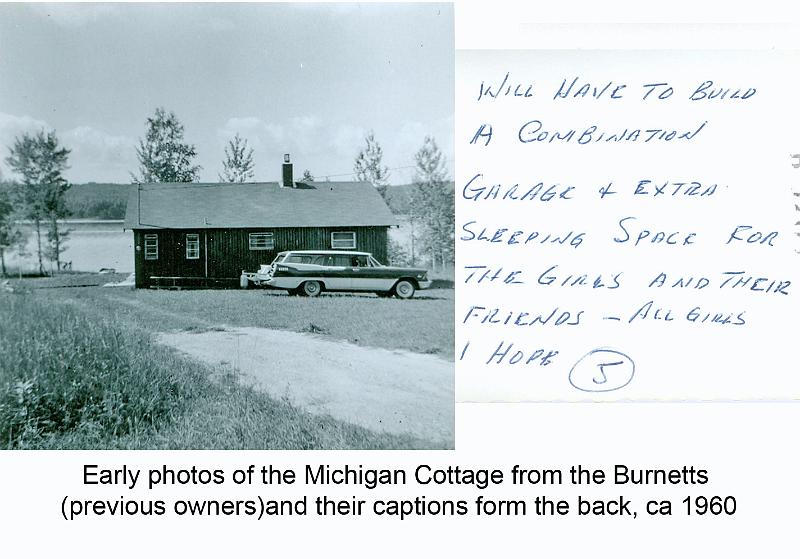 WILL HAVE TO BUILD
A COMBINATION
GARAGE & EXTRA
SLEEPING SPACE FOR
THE GIRLS AND THEIR
FRIENDS - ALL GIRLS
I HOPE 5
Early photos of the Michigan Cottage from the Burnetts
(previous owners)and their captions form the back, ca 1960